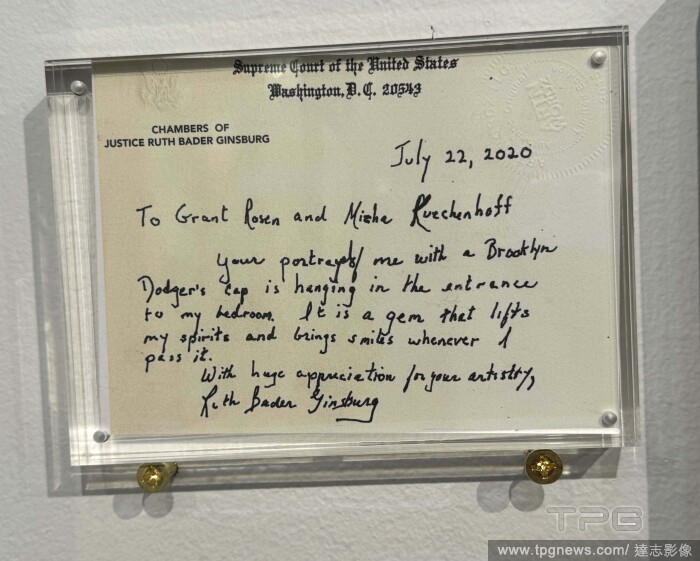 Supreme Court of the United States
Washington, D.C. 20543
CHAMBERS OF
JUSTICE RUTH BADER GINSBURG
July 22, 2020
To Grant Rosen and Misha Kuechenhoff
Your portrayal of me with a Brooklyn
Dodger's cap is hanging in the entrance
to my bedroom. It is a gem that lifts
my spirits and brings smiles whenever I
pass it.
With huge appreciation for your artistry,
Ruth Bader Ginsburg
TPG
www.tpgnews.com/ 達志影像